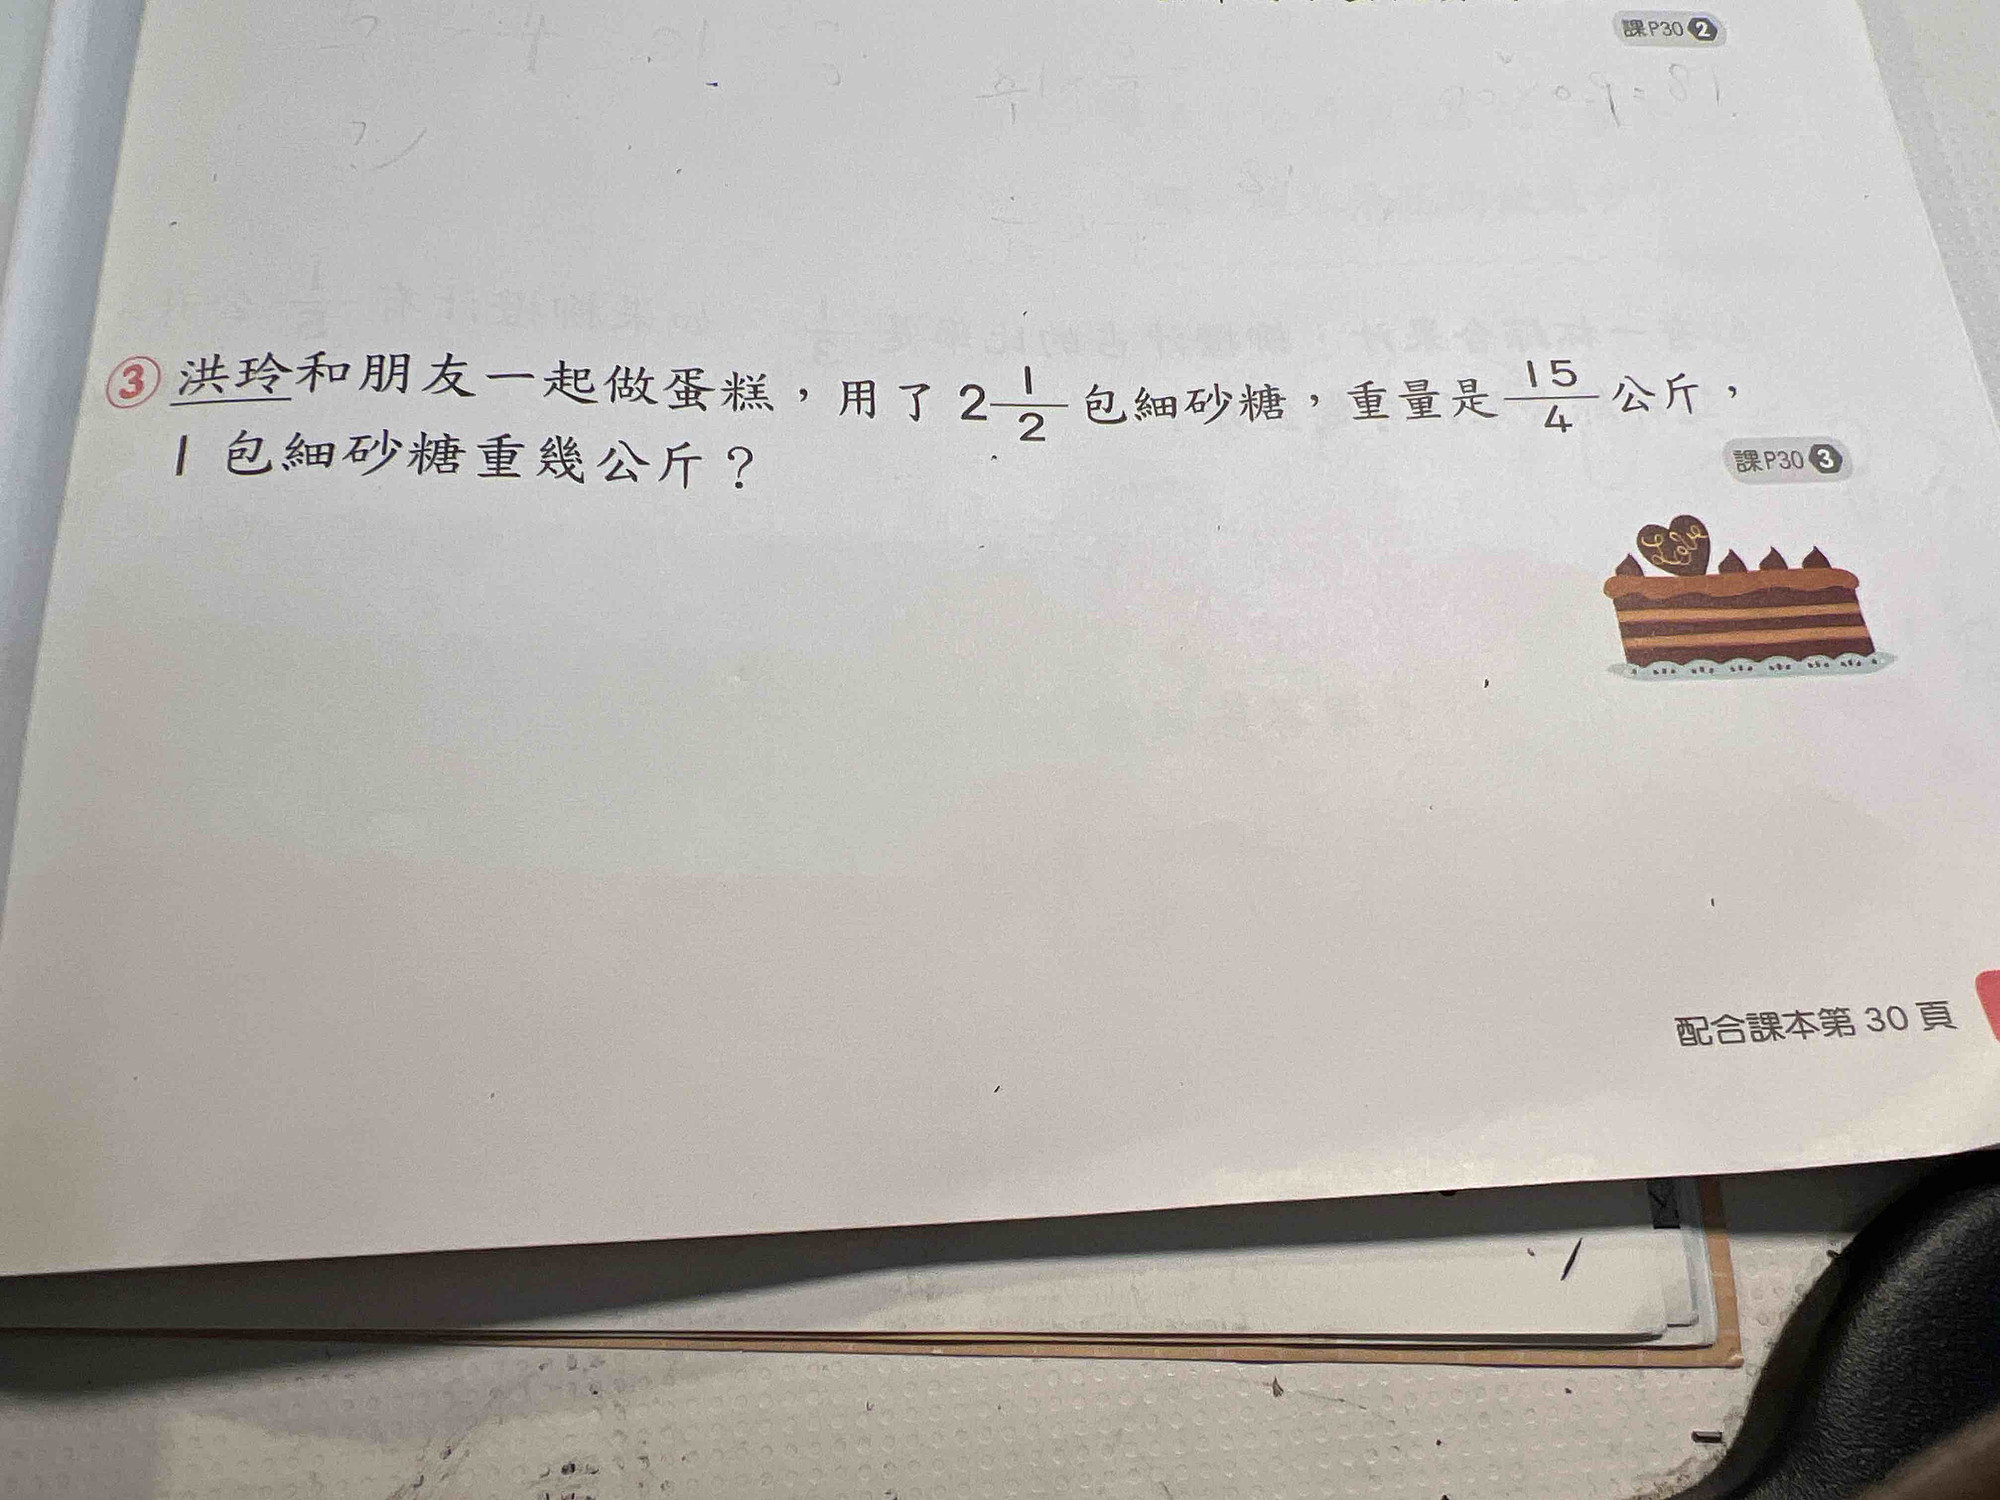 課P30 2
③ 洪玲和朋友一起做蛋糕，用了 2 1/2 包細砂糖，重量是 15/4 公斤，
1 包細砂糖重幾公斤？
課P30 3
Love
配合課本第 30 頁